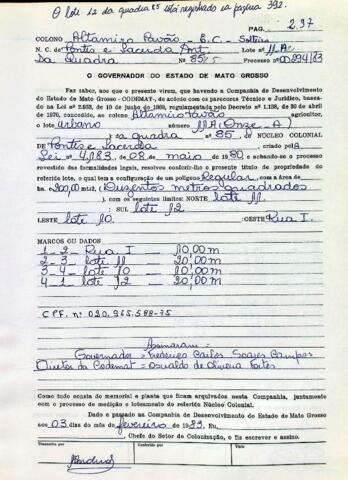 O lote 12 da quadra 85 está registrado na página 392.
PAG. 297
COLONO Altamiro Pavão - E.C. - Solteiro
N. C. de Pontes e Lacerda, Ant. Lote nº 11-A
Da Quadra Nº 85 Processo nº 00894/83
O GOVERNADOR DO ESTADO DE MATO GROSSO
Faz saber, aos que o presente virem, que havendo a Companhia de Desenvolvimento
do Estado de Mato Grosso - CODEMAT-, de acôrdo com os parceres Técnico e Jurídico, basea-
do na Lei nº 2.863, de 10 de junho de 1968, regulamentada pelo Decreto nº 1.138, de 30 de abril
de 1970, concedido, ao colono Altamiro Pavão agricultor, o
lote urbano número 11A (Onze-A)
da quadra nº 85, de NÚCLEO COLONIAL
de Pontes e Lacerda, criado pela
Lei nº 4.183, de 08 de maio de 1980 e achando-se o processo
revestido das formalidades legais, resolveu conferir-lhe o presente título de propriedade do
referido lote, o qual tem a configuração de um polígono Regular, com a área de
ha. 200,00 mts2, (Duzentos metros quadrados
), com os seguintes limites: NORTE lote 11
; SUL lote 12
LESTE lote 10 ; OESTE Rua I.
MARCOS OU DADOS
1 - 2 - Rua I = 10,00 m
2 - 3 - lote 11 = 20,00 m
3 - 4 - lote 10 = 10,00 m
4 - 1 - lote 12 = 20,00 m
CPF. nº 020.965.588-75
Assinaram =
Governador = Frederico Carlos Soares Campos
Diretor da Codemat = Oswaldo de Oliveira Fortes
Como tudo consta do memorial e planta que ficam arquivados nesta Companhia, juntamente
com o processo de medição e loteamento do referido Núcleo Colonial.
Dado e passado na Companhia de Desenvolvimento do Estado de Mato Grosso
aos 03 dias do mês de fevereiro de 1983, Eu,
Chefe do Setor de Colonização, o fiz escrever e assino.
Transcrito por Conferido por Visto